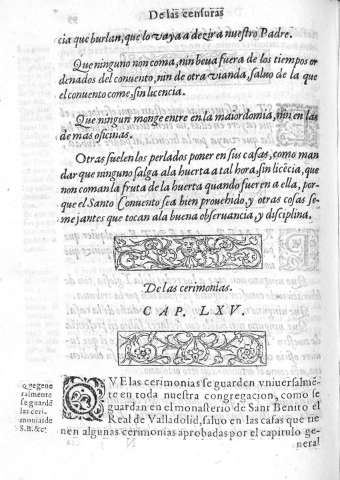 De las censuras
cia que burlan, que lo vaya a dezir a nuestro Padre.
Que ninguno non coma, nin beua fuera de los tiempos or
denados del conuento, nin de otra vianda, saluo de la que
el conuento come, sin licencia.
Que ningun monge entre en la maiordomia, nin en las
de mas oficinas.
Otras suelen los perlados poner en sus casas, como man
dar que ninguno salga ala huerta a tal hora, sin licēcia, que
non coman la fruta de la huerta quando fueren a ella, por-
que el Santo Conuento sea bien prouehido, y otras cosas se-
mejantes que tocan ala buena obseruancia, y disciplina.
De las cerimonias.
CAP. LXV.
Que gene
ralmente
se guardē
las ceri-
monias de
S.B. &c.
QVE las cerimonias se guarden vniuersalmē-
te en toda nuestra congregacion, como se
guardan en el monasterio de Sant Benito el
Real de Valladolid, saluo en las casas que tie
nen algunas cerimonias aprobadas por el capitulo ge-
neral